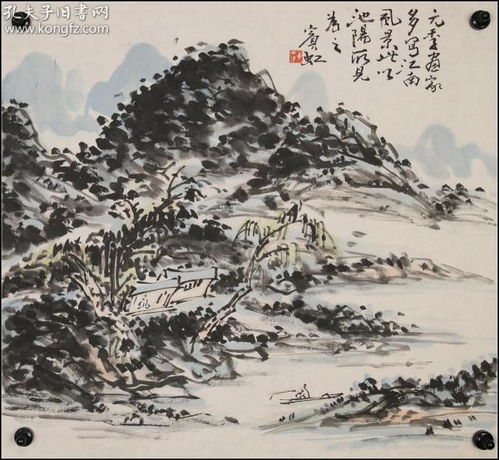 孔夫子旧书网
www.kongfz.com
元季画家
多写江南
风景此以
池阳所见
为之
宾虹